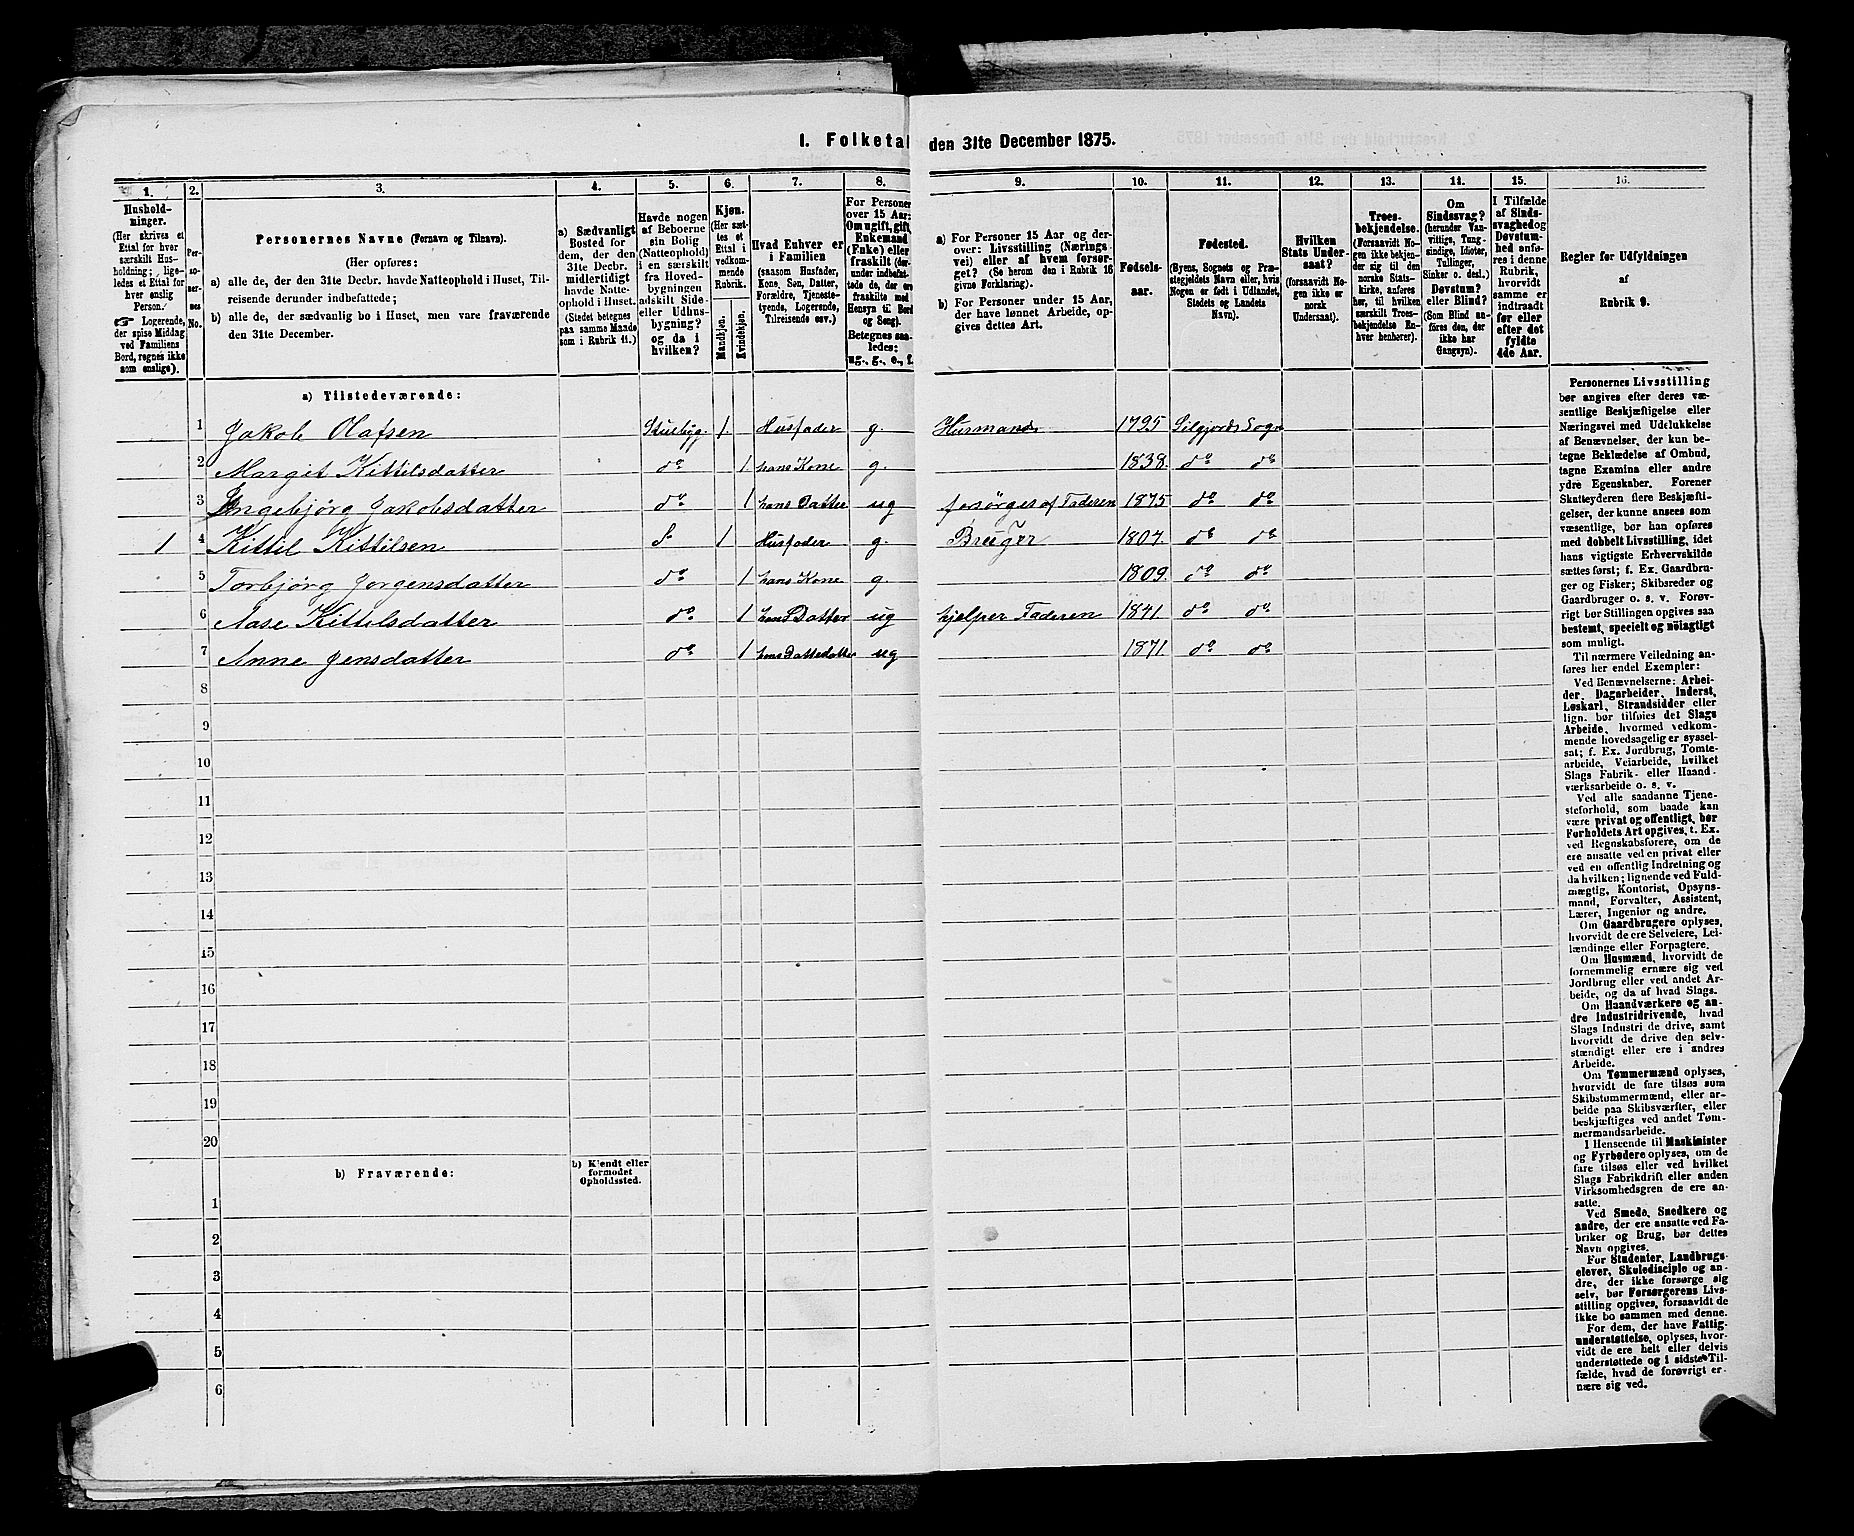 1. Folketal den 31te December 1875.
1. 2. 3. 4. 5. 6. 7. 8. 9. 10. 11. 12. 13. 14. 15. 16.
Hushold-
ninger.
(Her skrives et
Ettal for hver
særskilt Hus-
holdning; lige-
ledes et Ettal for
hver enslig
Person.
☞ Logerende,
der spise Middag
ved Familiens
Bord, regnes ikke
som enslige).
Per-
so-
ner-
nes
No.
Personernes Navne (Fornavn og Tilnavn).
(Her opføres:
a) alle de, der den 31te Decbr. havde Natteophold i Huset, Til-
reisende derunder indbefattede;
b) alle de, der sædvanlig bo i Huset, men vare fraværende
den 31te December.
a) Sædvanligt
Bosted for
dem, der den
31te Decbr.
midlertidigt
havde Natte-
ophold i Huset.
(Stedet betegnes
paa samme Maade
som i Rubrik 11.)
Havde nogen
af Beboerne
sin Bolig
(Natteophold)
i en særskilt
fra Hoved-
bygningen
adskilt Side-
eller Udhus-
bygning?
og da i
hvilken?
Kjøn.
(Her sæt-
tes et
Ettal i
vedkom-
mende
Rubrik.
Mandkjøn.
Kvindekjøn.
Hvad Enhver er
i Familien
(saasom Husfader,
Kone, Søn, Datter,
Forældre, Tjeneste-
tyende, Logerende,
Tilreisende osv.)
For Personer
over 15 Aar:
Om ugift, gift,
Enkemand
(Enke) eller
fraskilt (her-
under indbefat-
tede de, der ere
fraskilte med
Hensyn til Bord
og Seng).
Betegnes saa-
ledes:
ug., g., e., f.
a) For Personer 15 Aar og der-
over: Livsstilling (Nærings-
vei) eller af hvem forsør-
get? (Se herom den i Rubrik 16
givne Forklaring).
b) For Personer under 15 Aar,
der have lønnet Arbeide, op-
gives dettes Art.
Fødsels-
aar.
Fødested.
(Byens, Sognets og Præ-
stegjeldets Navn eller, hvis
Nogen er født i Udlandet,
Stedets og Landets
Navn).
Hvilken
Stats Under-
saat?
(forsaavidt No-
gen ikke er
norsk
Undersaat).
Troes-
bekjendelse.
(Forsaavidt No-
gen ikke bekjen-
der sig til den
norske Stats-
kirke, anføres
her, til hvilken
særskilt Troes-
bekjendelse En-
hver henhører).
Om
Sindssvag?
(herunder Van-
vittige, Tung-
sindige, Idioter,
Tullinger,
Sinker o. desl.)
Døvstum?
eller Blind?
(Som Blind an-
føres den, der
ikke har
Gangsyn).
I Tilfælde
af Sinds-
svaghed og
Døvstum-
hed anfø-
res i denne
Rubrik,
hvorvidt
samme er
indtraadt
før eller
efter det
fyldte
4de Aar.
Regler før Udfyldningen
af
Rubrik 9.
a) Tilstedeværende:
1 Jakob Olafsen Stuebyg. 1. Husfader g. Husmand 1795 Silgjords Sogn
2 Margit Kittilsdatter do 1 hans Kone g. 1838. do do
3 Ingebjörg Jakobsdatter do 1 hans Datter ug forsörges af Faderen 1875 do do
1 4 Kittil Kittilsen do 1 Husfader g. 1807. do do
5 Torbjörg Jorgensdatter do 1 hans Kone g. 1809. do do
6 Aase Kittilsdatter do 1 hans Datter ug hjelper Faderen 1841. do do
7 Anne Jensdatter do 1 hans Datterdatter ug 1871. do do
8
9
10
11
12
13
14
15
16
17
18
19
20
b) Fraværende:
b) Kjendt eller
formodet
Opholdssted.
1
2
3
4
5
6
Personernes Livsstilling
bør angives efter deres væ-
sentlige Beskjæftigelse eller
Næringsvei med Udelukkelse
af Benævnelser, der kun be-
tegne Beklædelse af Ombud,
tagne Examina eller andre
ydre Egenskaber. Forener
Skatteyderen flere Beskjæfti-
gelser, der kunne ansees som
væsentlige, bør han opføres
med dobbelt Livsstilling, idet
hans vigtigste Erhvervskilde
sættes først; f. Ex. Gaardbru-
ger og Fisker; Skibsreder og
Gaardbruger o. s. v. Forøv-
rigt bør Stillingen opgives saa
bestemt, specielt og nøiagtigt
som muligt.
Til nærmere Veiledning an-
føres her endel Exempler:
Ved Benævnelserne: Arbei-
der, Dagarbeider, Inderst,
Løskarl, Strandsidder eller
lign. bør tilføies det Slags
Arbeide, hvormed vedkom-
mende hovedsagelig er syssel-
sat; f. Ex. Jordbrug, Tomte-
arbeide, Veiarbeide, hvilket
Slags Fabrik- eller Haand-
værksarbeide o. s. v.
Ved alle saadanne Tjene-
steforhold, som baade kan
være privat og offentligt, bør
Forholdets Art opgives, t. Ex.
ved Regnskabsførere, om de
ere ansatte ved en privat eller
ved en offentlig Indretning og
da hvilken; lignende ved Fuld-
mægtig, Kontorist, Opsyns-
mand, Forvalter, Assistent,
Lærer, Ingeniør og andre.
Om Gaardbrugere oplyses,
hvorvidt de ere Selveiere, Lei-
lændinge eller Forpagtere.
Om Husmænd, hvorvidt de
fornemmelig ernære sig ved
Jordbrug eller ved andet Ar-
beide, og da af hvad Slags.
Om Haandværkere og an-
dre Industridrivende, hvad
Slags Industri de drive, samt
hvorvidt de drive den selv-
stændigt eller ere i andres
Arbeide.
Om Tømmermænd oplyses,
hvorvidt de fare tilsøs som
Skibstømmermænd, eller ar-
beide paa Skibsværfter, eller
beskjæftiges ved andet Tøm-
mermandsarbeide.
I Henseende til Maskinister
og Fyrbødere oplyses, om de
fare tilsøs eller ved hvilket
Slags Fabrikdrift eller anden
Virksomhedsgren de ere an-
satte.
Ved Smede, Snedkere og
andre, der ere ansatte ved Fa-
briker og Brug, bør dettes
Navn opgives.
For Studenter, Landbrugs-
elever, Skoledisciple og an-
dre, der ikke forsørge sig
selv, bør Forsørgerens Livs-
stilling opgives, forsaavidt de
ikke bo sammen med denne.
For dem, der have Fattig-
understøttelse, oplyses, hvor-
vidt de ere helt eller delvis
understøttede og i sidste Til-
fælde, hvad de forøvrigt er-
nære sig ved.